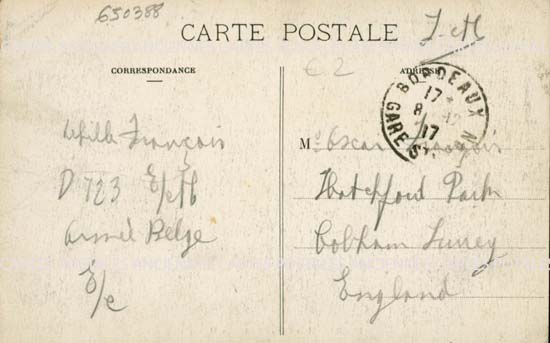 650388
CARTE POSTALE
CORRESPONDANCE
ADRESSE
€ 2
BORDEAUX
17
8 12
17
GARE ST
François
D 723
Armée Belge
M. Oscar François
Hatchford Park
Cobham Surrey
England